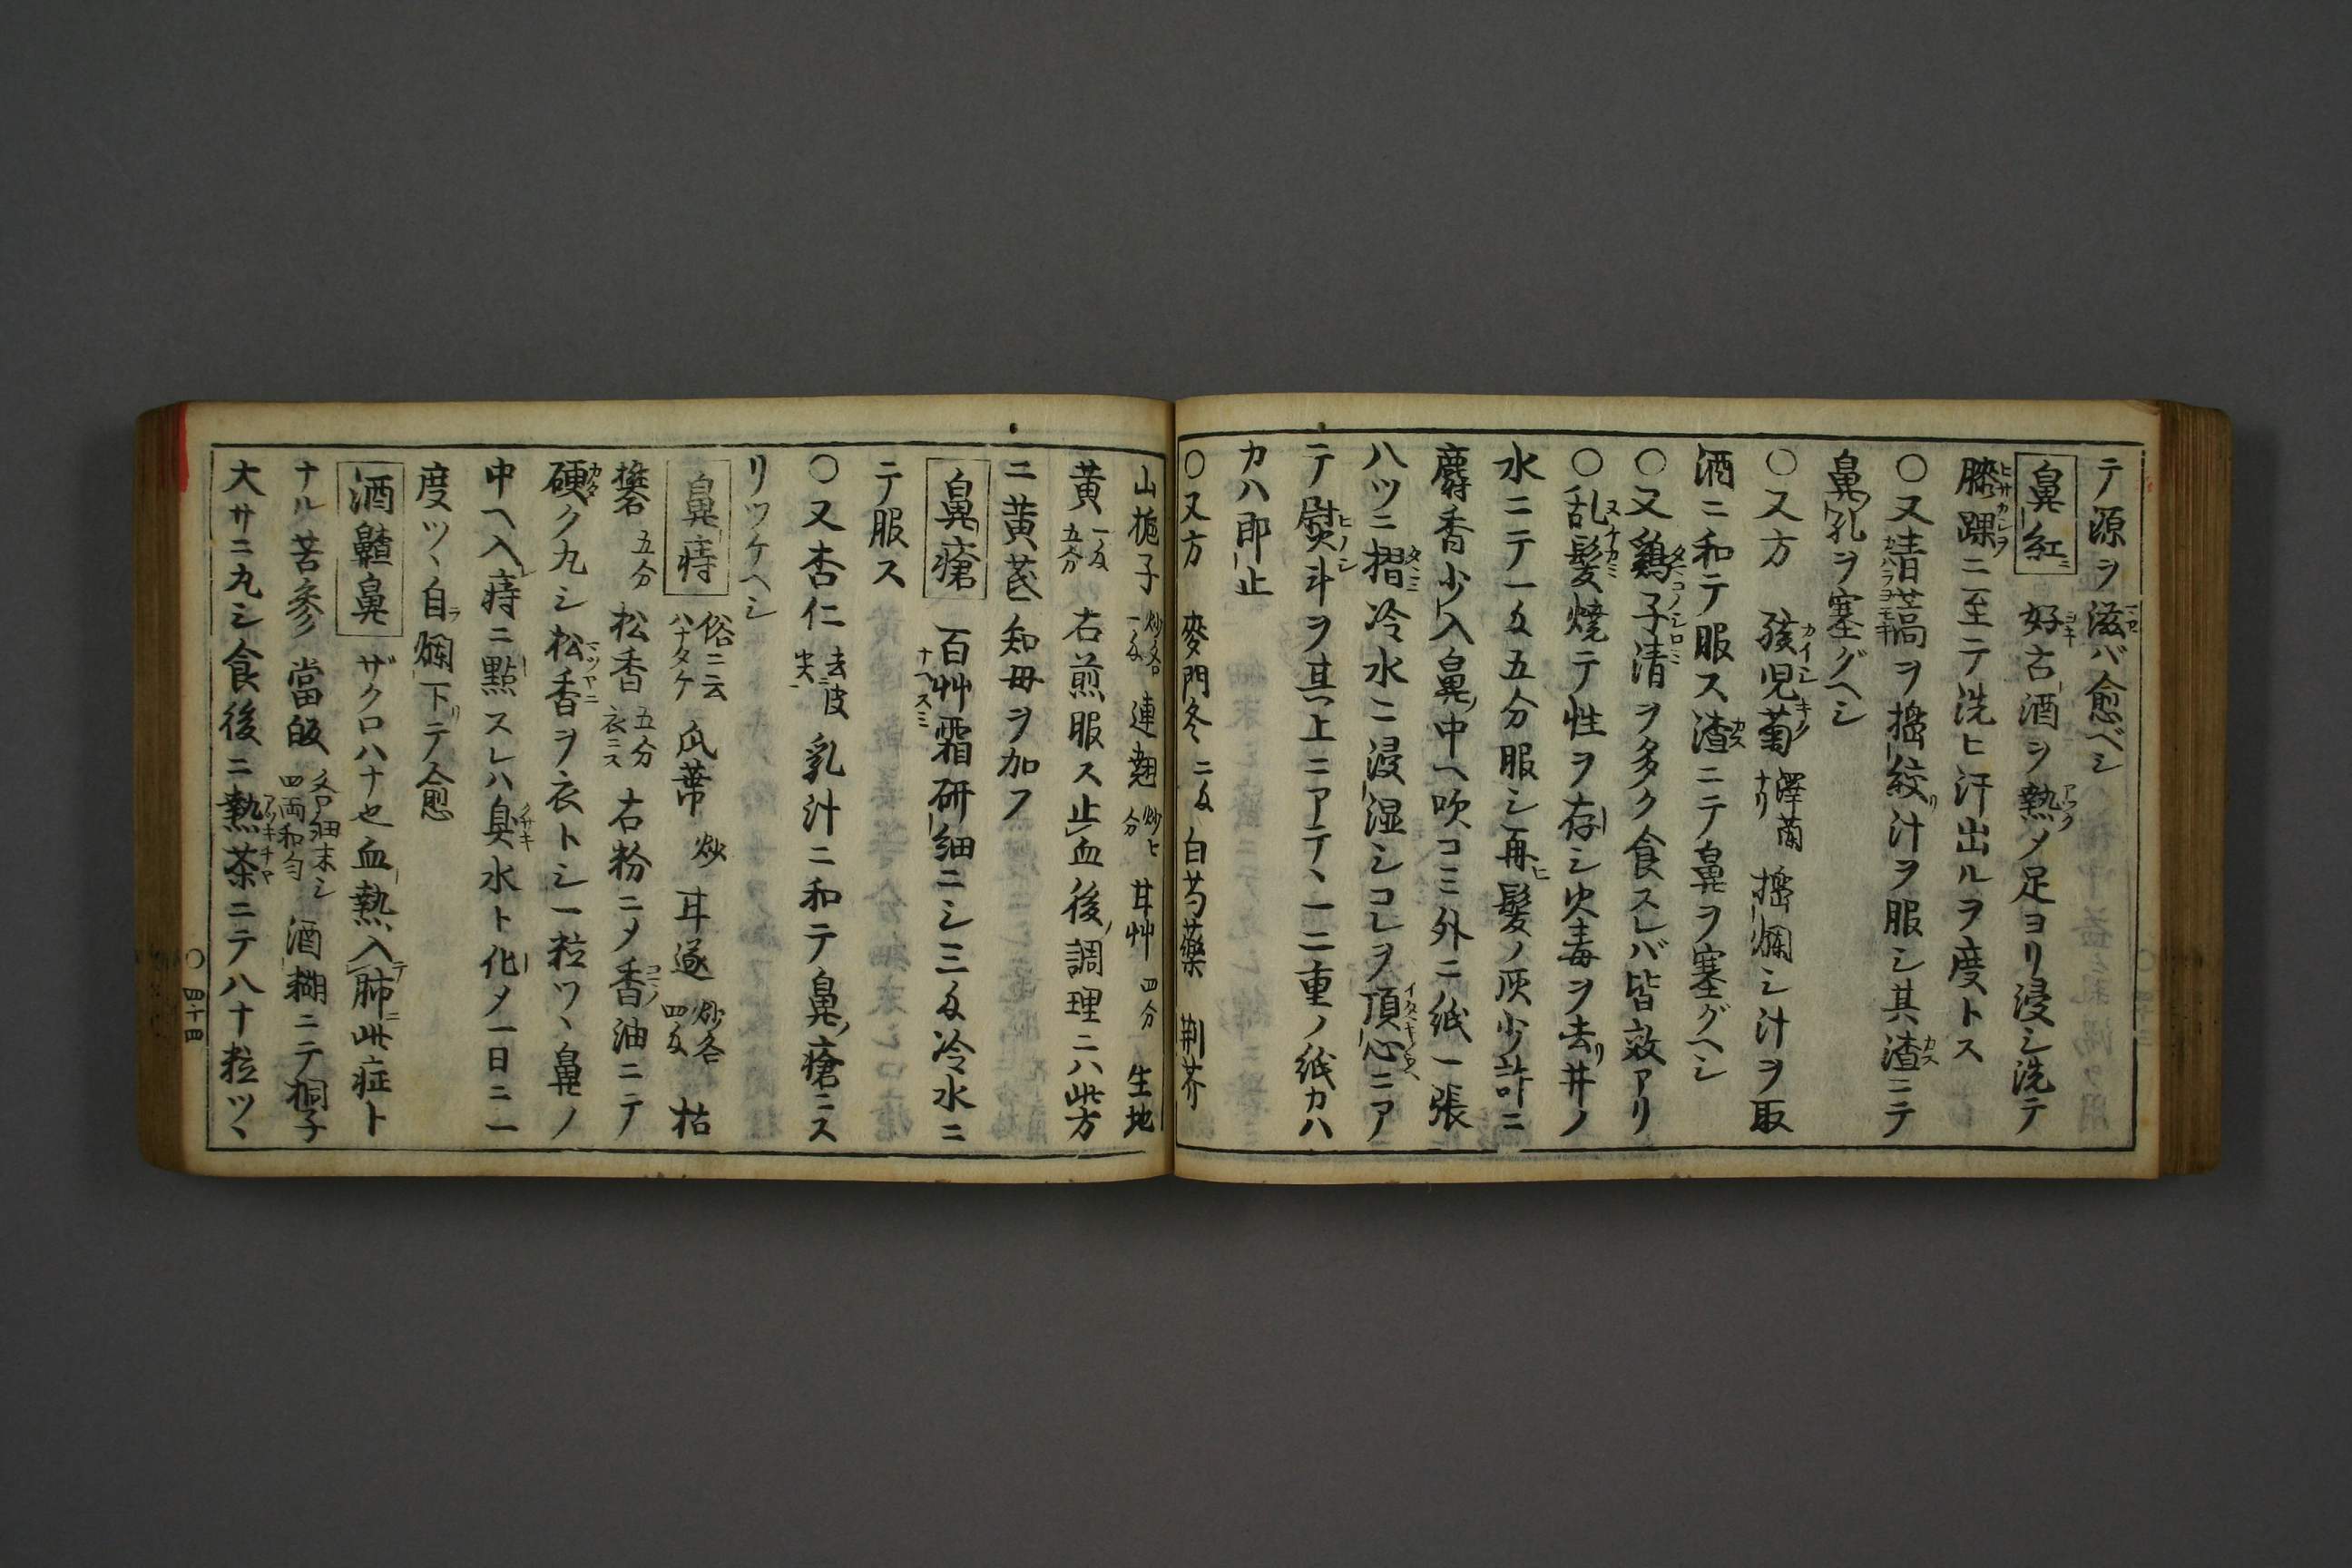 テ源ヲ滋バ愈ベシ
鼻紅 好古酒ヲ熱メ足ヨリ浸シ洗テ
膝踝ニ至テ洗ヒ汗出ルヲ度トス
〇又青蒿ヲ搗絞リ汁ヲ服シ其渣ニテ
鼻孔ヲ塞グヘシ
〇又方 孩児菊 澤蘭ナリ 搗爛シ汁ヲ取
酒ニ和テ服ス渣ニテ鼻ヲ塞グヘシ
〇又鶏子清ヲ多ク食スレバ皆效アリ
〇乱髪焼テ性ヲ存シ火毒ヲ去リ井ノ
水ニテ一匁五分服シ再ヒ髪ノ灰少許ニ
麝香少入鼻ノ中ヘ吹コミ外ニ紙一張
八ツニ摺冷水ニ浸湿シコレヲ頂心ニア
テ熨斗ヲ其上ニアテヽ一二重ノ紙カハ
カハ即止
〇又方 麥門冬 二匁 白芍藥 荆芥
山梔子 炒各一匁 連翹 炒七分 甘艸 四分 生地
黄 一匁五分 右煎服ス止血後ノ調理ニハ此方
ニ黄芪知母ヲ加フ
鼻瘡 百艸霜研細ニシ三匁冷水ニ
テ服ス
〇又杏仁 去皮尖 乳汁ニ和テ鼻ノ瘡ニス
リツケヘシ
鼻痔 俗ニ云ハナタケ 瓜蔕 炒 甘遂 炒各四匁 枯
礬 五分 松香 五分衣ニス 右粉ニメ香油ニテ
硬ク丸シ松香ヲ衣トシ一粒ツヽ鼻ノ
中ヘ入痔ニ點スレハ臭水ト化メ一日ニ一
度ツヽ自ラ爛下リテ愈
酒皶鼻 ザクロハナ也血熱入肺此症ト
ナル苦参 當皈 各細末シ四両和匀 酒糊ニテ桐子
大サニ丸シ食後ニ熱茶ニテ八十粒ツヽ
〇四十四